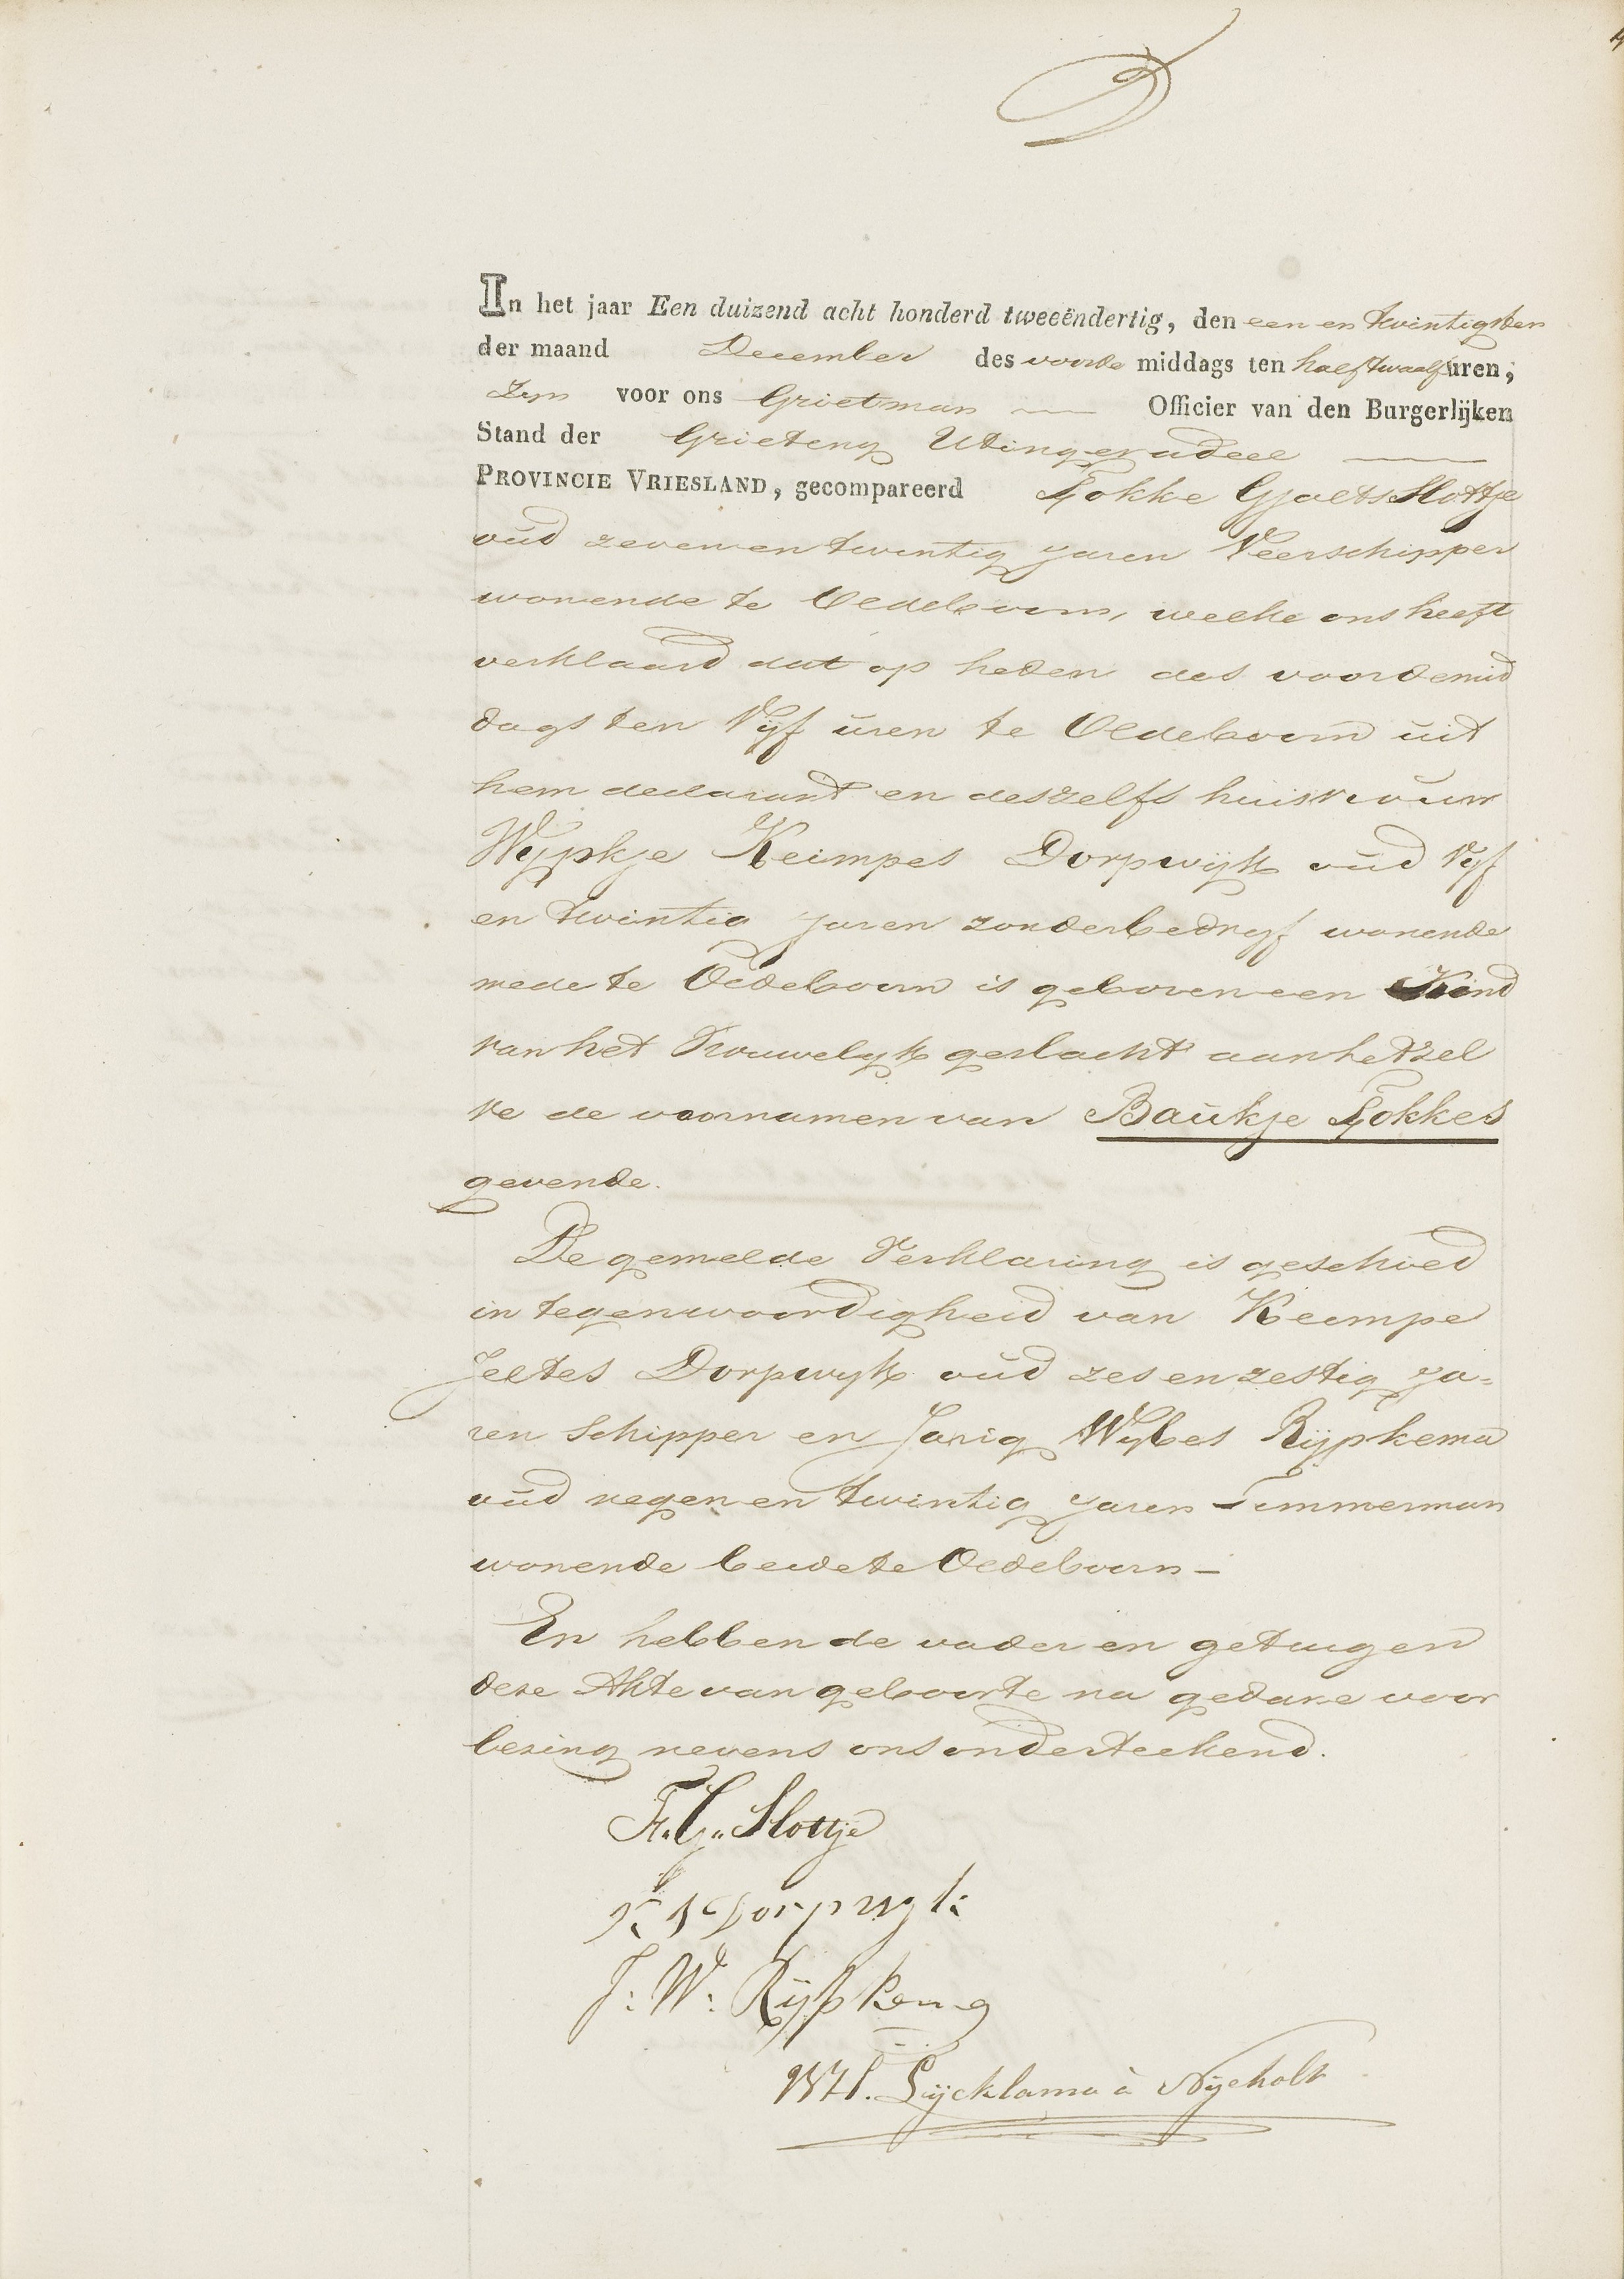 In het jaar Een duizend acht honderd tweeëndertig, den een en twintigsten
der maand December des voorde middags ten half twaalf uren,
zyn voor ons Grietman Officier van den Burgerlijken
Stand der Grieteny Utingeradeel
PROVINCIE VRIESLAND, gecompareerd Fokke Gjaets Slottje
oud zevenen twintig jaren Veerschipper
wonende te Oldeboorn, welke ons heeft
verklaard dat op heden des voordemid
dags ten Vyf uren te Oldeboorn uit
hem declarant en deszelfs huisvrouw
Wypkje Keimpes Dorpwyk oud Vyf
en twintig jaren zonder bedryf wonende
mede te Oldeboorn is geboren een Kind
van het Vrouwelyk geslacht aan hetzel
ve de voornamen van Baukje Fokkes
gevende.
De gemelde Verklaring is geschied
in tegenwoordigheid van Keimpe
Jeltes Dorpwyk oud zes en zestig ja=
ren Schipper en Jarig Wybes Rijpkema
oud negen en twintig jaren Timmerman
wonende beide te Oldeboorn –
En hebben de vader en getuigen
deze Akte van geboorte na gedane voor
lezing nevens ons onderteekend.
F. G. Slottje
K J Dorpwyk
J: W: Rijpkema
Lycklama à Nyeholt